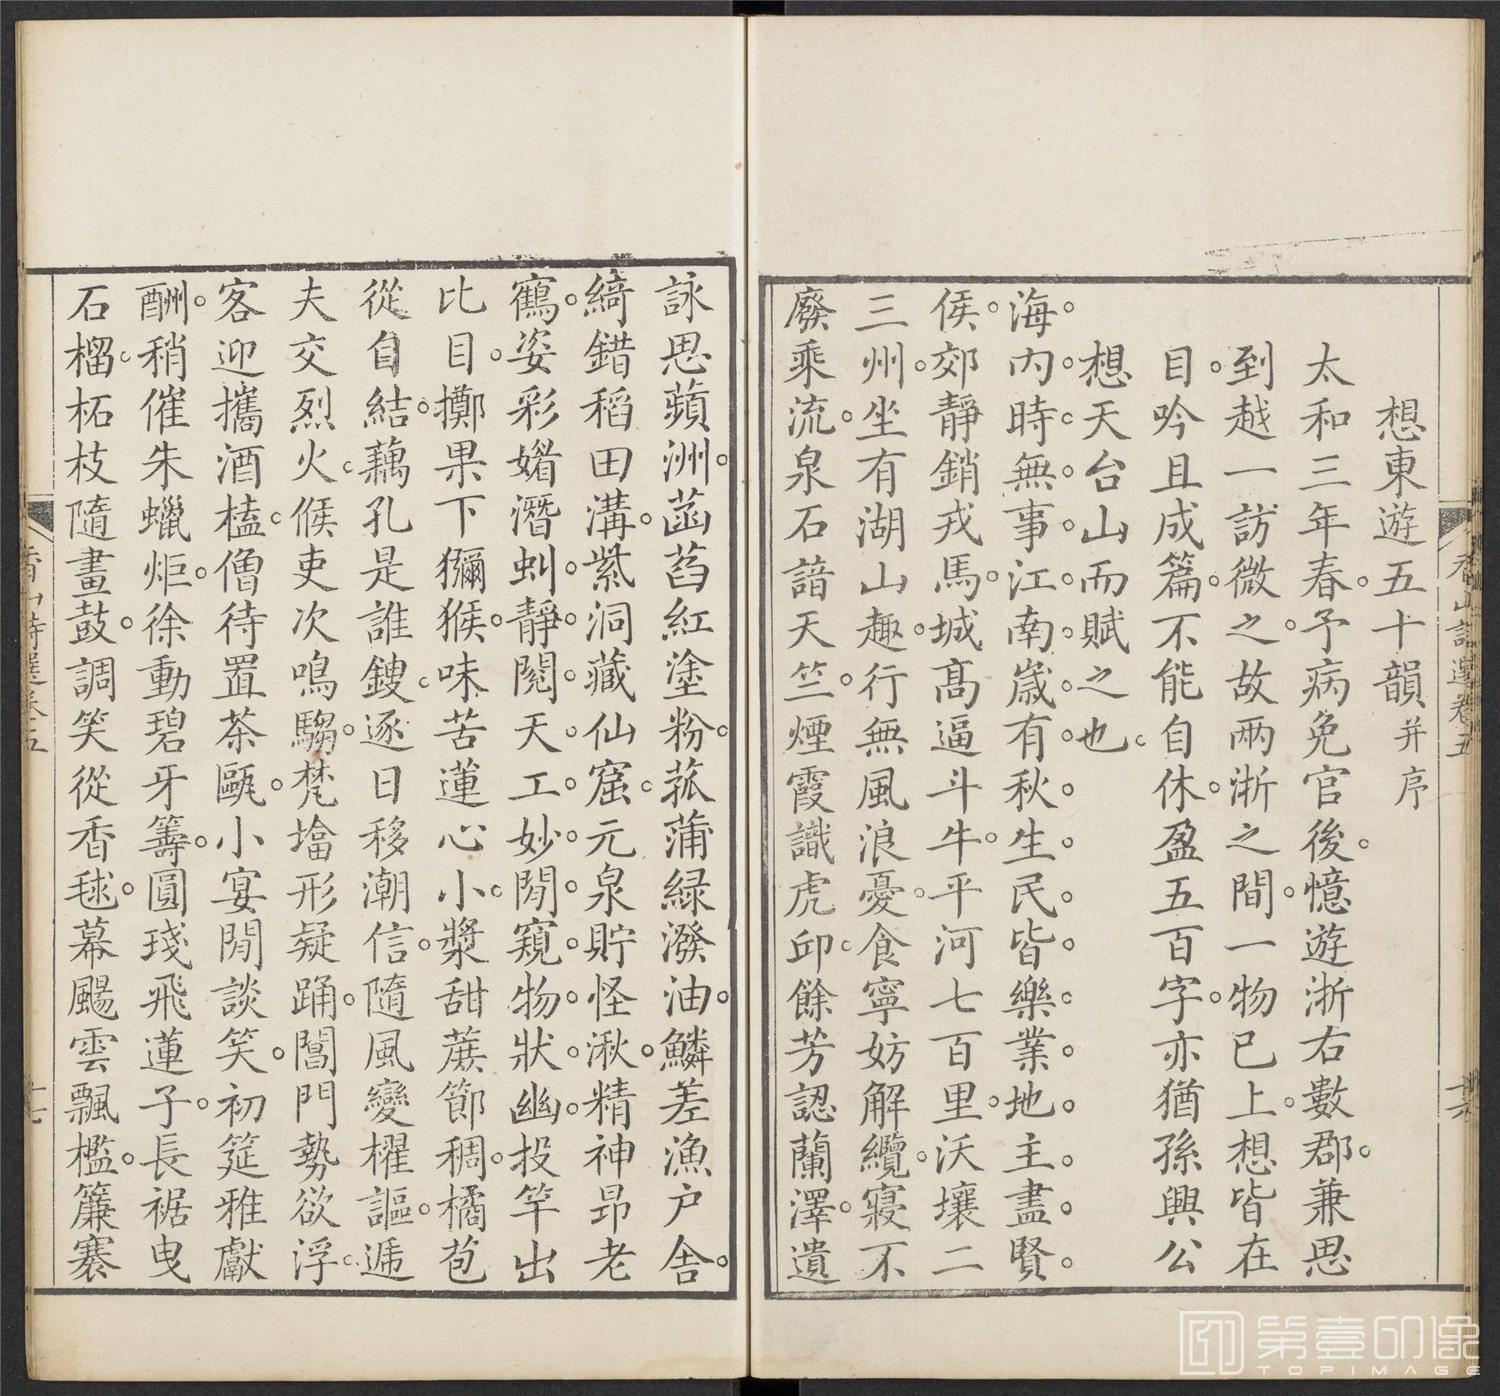 想東遊五十韻并序
太和三年春。予病免官後。憶遊浙右數郡。兼思
到越一訪微之。故兩浙之間。一物已上。想皆在
目。吟且成篇。不能自休。盈五百字。亦猶孫興公
想天台山而賦之也。
海內時無事。江南歲有秋。生民皆樂業。地主盡賢
侯。郊靜銷戎馬。城高逼斗牛。平河七百里。沃壤二
三州。坐有湖山趣。行無風浪憂。食寧妨解纜。寢不
廢乘流。泉石諳天竺。煙霞識虎邱。餘芳認蘭澤。遺
香山詩選卷五
十六
詠思蘋洲。菡萏紅塗粉。菰蒲綠潑油。鱗差漁户舍。
綺錯稻田溝。紫洞藏仙窟。元泉貯怪湫。精神昂老
鶴。姿彩媚潛虯。靜閱天工妙。閒窺物狀幽。投竿出
比目。擲果下獼猴。味苦蓮心小。漿甜蔗節稠。橘苞
從自結。藕孔是誰鎪。逐日移潮信。隨風變櫂謳。遞
夫交烈火。候吏次鳴騶。梵塔形疑踊。閶門勢欲浮。
客迎攜酒榼。僧待置茶甌。小宴閒談笑。初筵雅獻
酬。稍催朱蠟炬。徐動碧牙籌。圓琖飛蓮子。長裾曳
石榴。柘枝隨畫鼓。調笑從香毬。幕颺雲飄檻。簾褰
香山詩選卷五
十七
第壹印像
TOPIMAGE